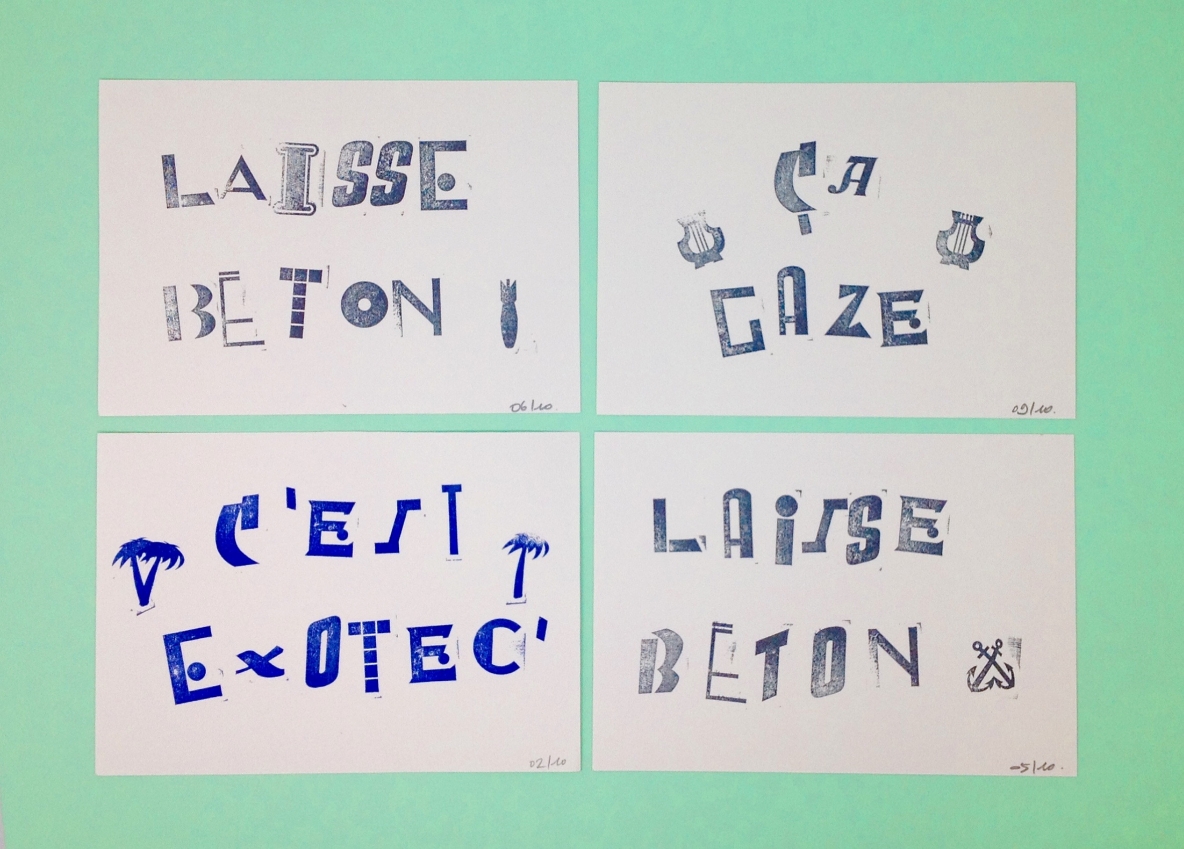 LAISSE
BÉTON
06/10
ÇA
GAZE
09/10.
C'EST
EXOTEC'
02/10
LAiSSE
BÉTON
05/10.